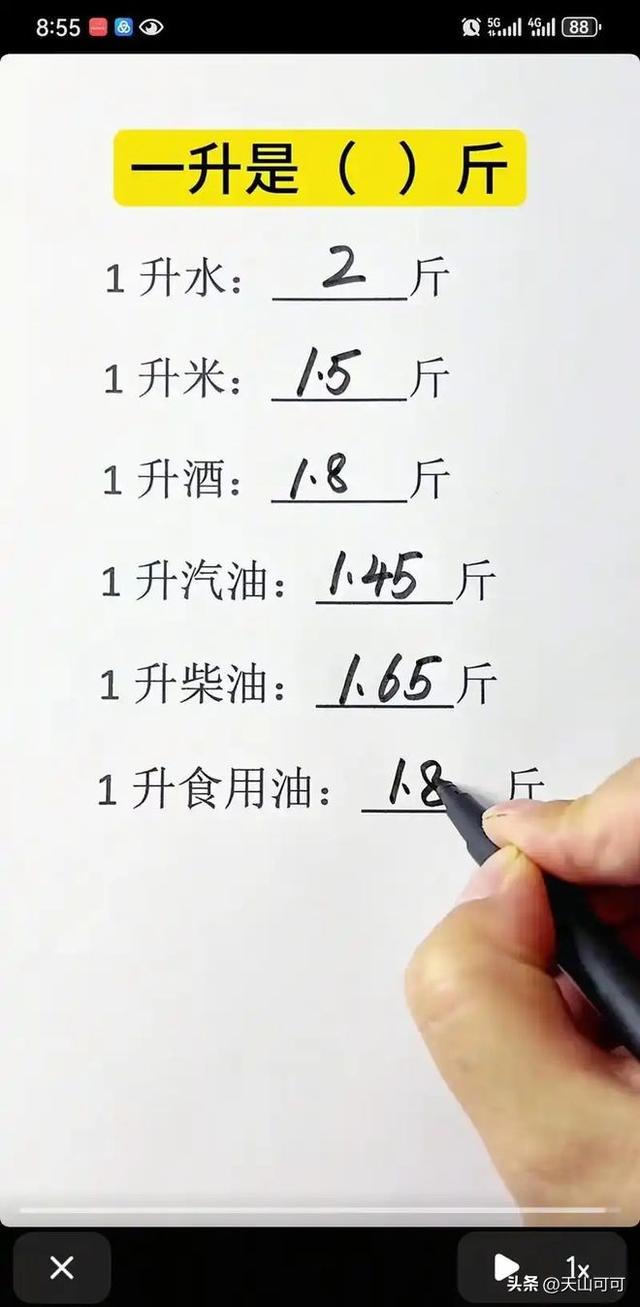 8:55
5G
4G
88
一升是（ ）斤
1升水：2斤
1升米：1.5斤
1升酒：1.8斤
1升汽油：1.45斤
1升柴油：1.65斤
1升食用油：1.8斤
1x
头条 @天山可可